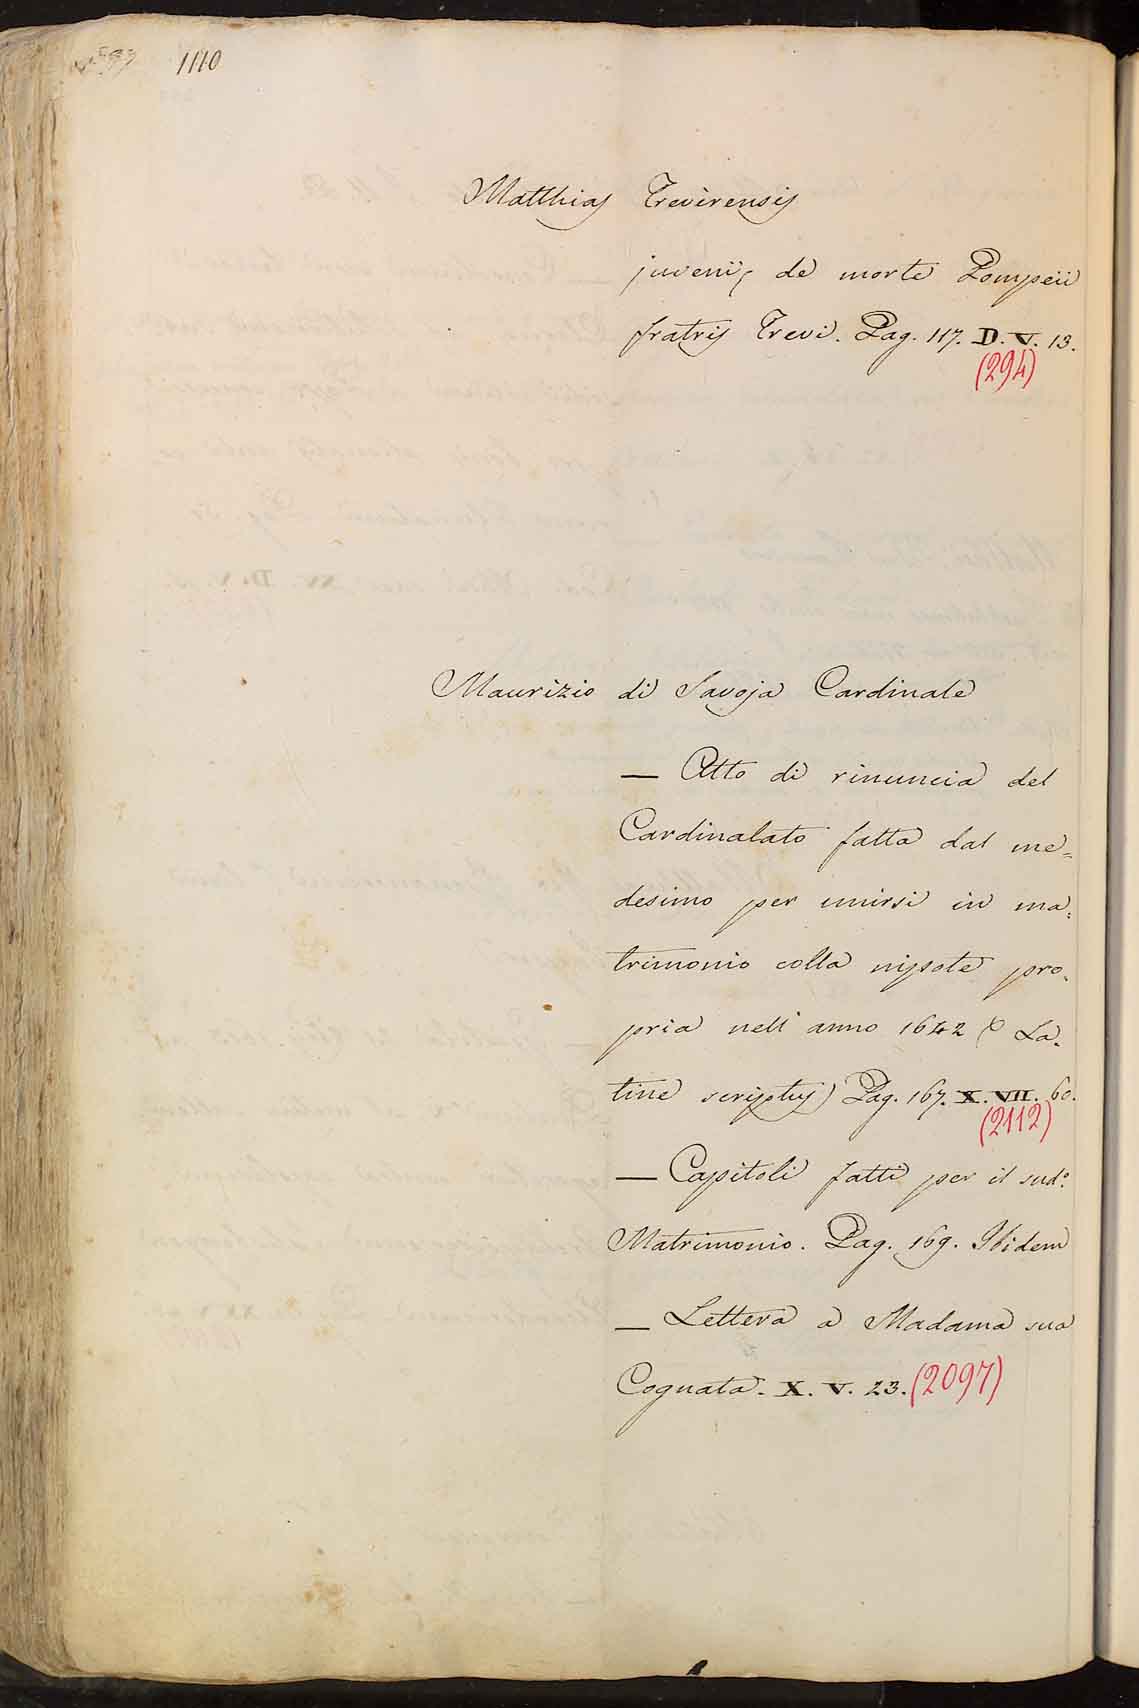 1110
Matthias Trevirensis
juvenis, de morte Pompeii
fratris Trevi. Pag. 117. D. V. 13.
(294)
Maurizio di Savoja Cardinale
— Atto di rinuncia del
Cardinalato fatta dal me=
desimo per unirsi in ma=
trimonio colla nipote pro=
pria nell' anno 1642 (La=
tine scriptus) Pag. 167. X. VII. 60.
(2112)
— Capitoli fatti per il sudº
Matrimonio. Pag. 169. Ibidem
— Lettera a Madama sua
Cognata. X. V. 23. (2097)